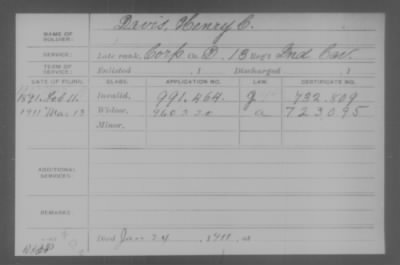 NAME OF SOLDIER: Davis, Henry C.
SERVICE: Late rank, Corp. Co. D, 13 Reg't Ind Cav.
TERM OF SERVICE: Enlisted , 1 Discharged , 1
DATE OF FILING. CLASS. APPLICATION NO. LAW. CERTIFICATE NO.
1891. Feb 11. Invalid, 991.464. G 732.809
1911 Mar 13 Widow, 960320 a 723095
Minor,
ADDITIONAL SERVICES:
REMARKS:
Died Jan 24, 1911, at